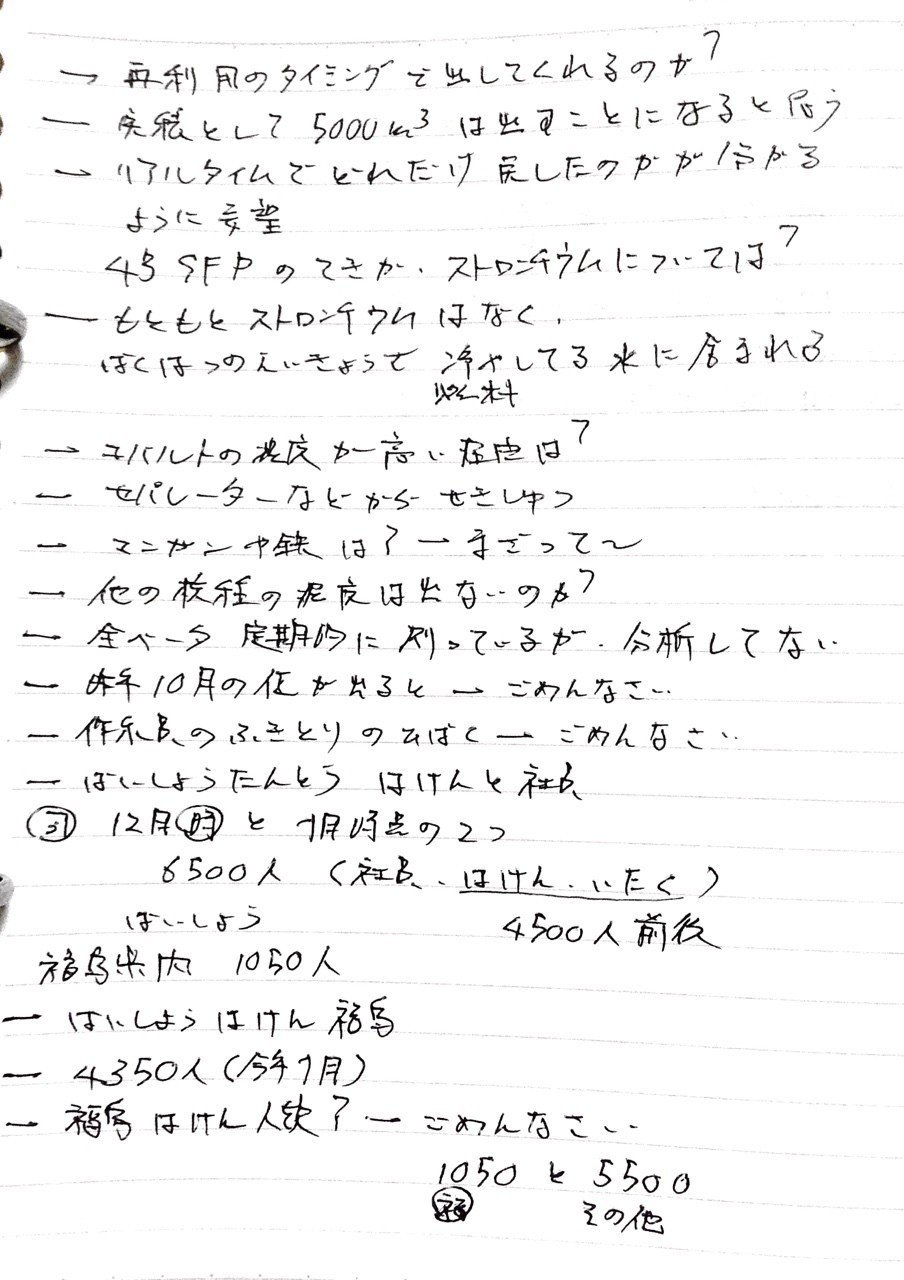 → 再利用のタイミングで出してくれるのか?
— 実績として 5000m³ は出すことになると思う
→ リアルタイムでどれだけ戻したのかが分かる
ように要望
4号SFPの てきか. ストロンチウムについては?
— もともと ストロンチウム はなく.
ばくはつのえいきょうで 冷やしてる 水に含まれる
燃料
→ コバルトの濃度が高い 理由は?
— セパレーターなどから せきしゅつ
— マンガンや鉄 は? — まざって〜
— 他の核種の濃度は出ないのか?
— 全ベータ 定期的に 測っているが. 分析してない
— 昨年10月の値が出ると → ごめんなさい
— 作業員のふきとりのひばく — ごめんなさい
— ばいしょうたんとう はけんと社員
12月時 と 7月時点の2つ
6500人 (社員. はけん. いたく)
ばいしょう 4500人前後
福島県内 1050人
— ばいしょう はけん 福島
— 4350人(今年7月)
— 福島 はけん人数? — ごめんなさい
1050 と 5500
福 その他